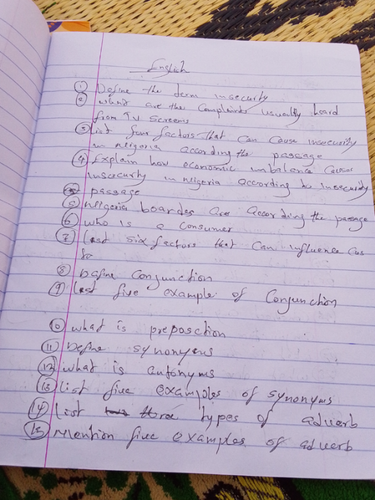 English
① Define the term insecurity
② what are the complaints usually heard
from TV screens
③ list four factors that can cause insecurity
in nigeria according the passage
④ Explain how economic imbalance cause
insecurity in nigeria according to insecurity
passage
⑤ Nigeria boardes are according the passage
⑥ who is a consumer
⑦ list six factors that can influence cos
⑧ Define conjunction
⑨ list five example of Conjunction
⑩ what is preposction
⑪ Define synonyms
⑫ what is antonyms
⑬ list five examples of synonyms
⑭ list three types of adverb
⑮ Mention five examples of adverb